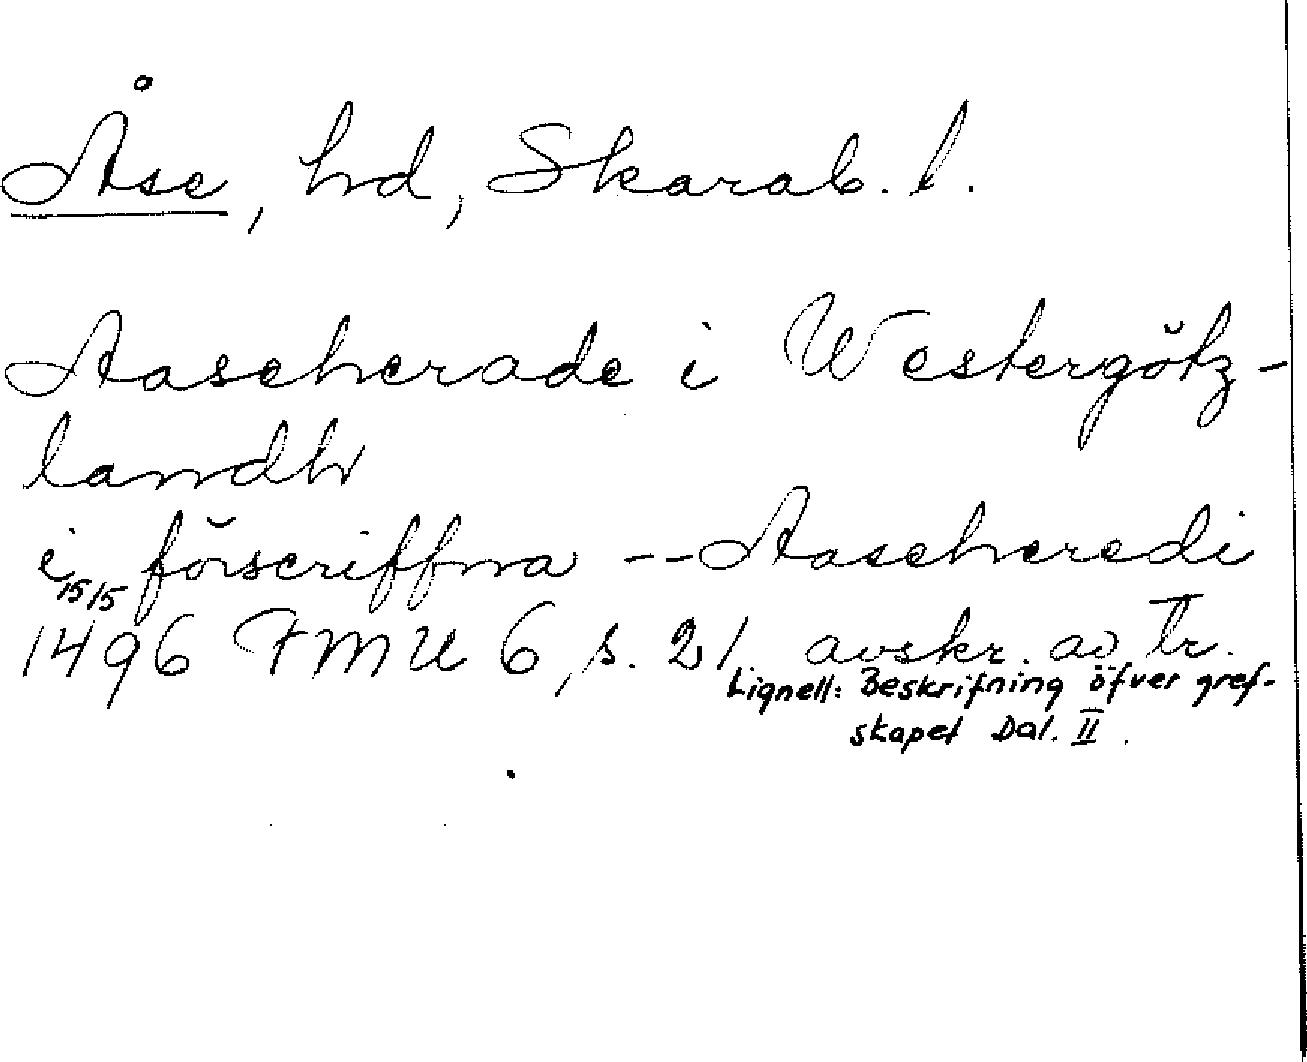 Åse, hd, Skarab. l.
Aaseherade i Westergötz-
landh
i förscriffna -- Aaseheredi
15/5
1496 FMU 6, s. 21 avskr. av Tr.
Lignell: Beskrifning öfver gref-
skapet Dal. II.